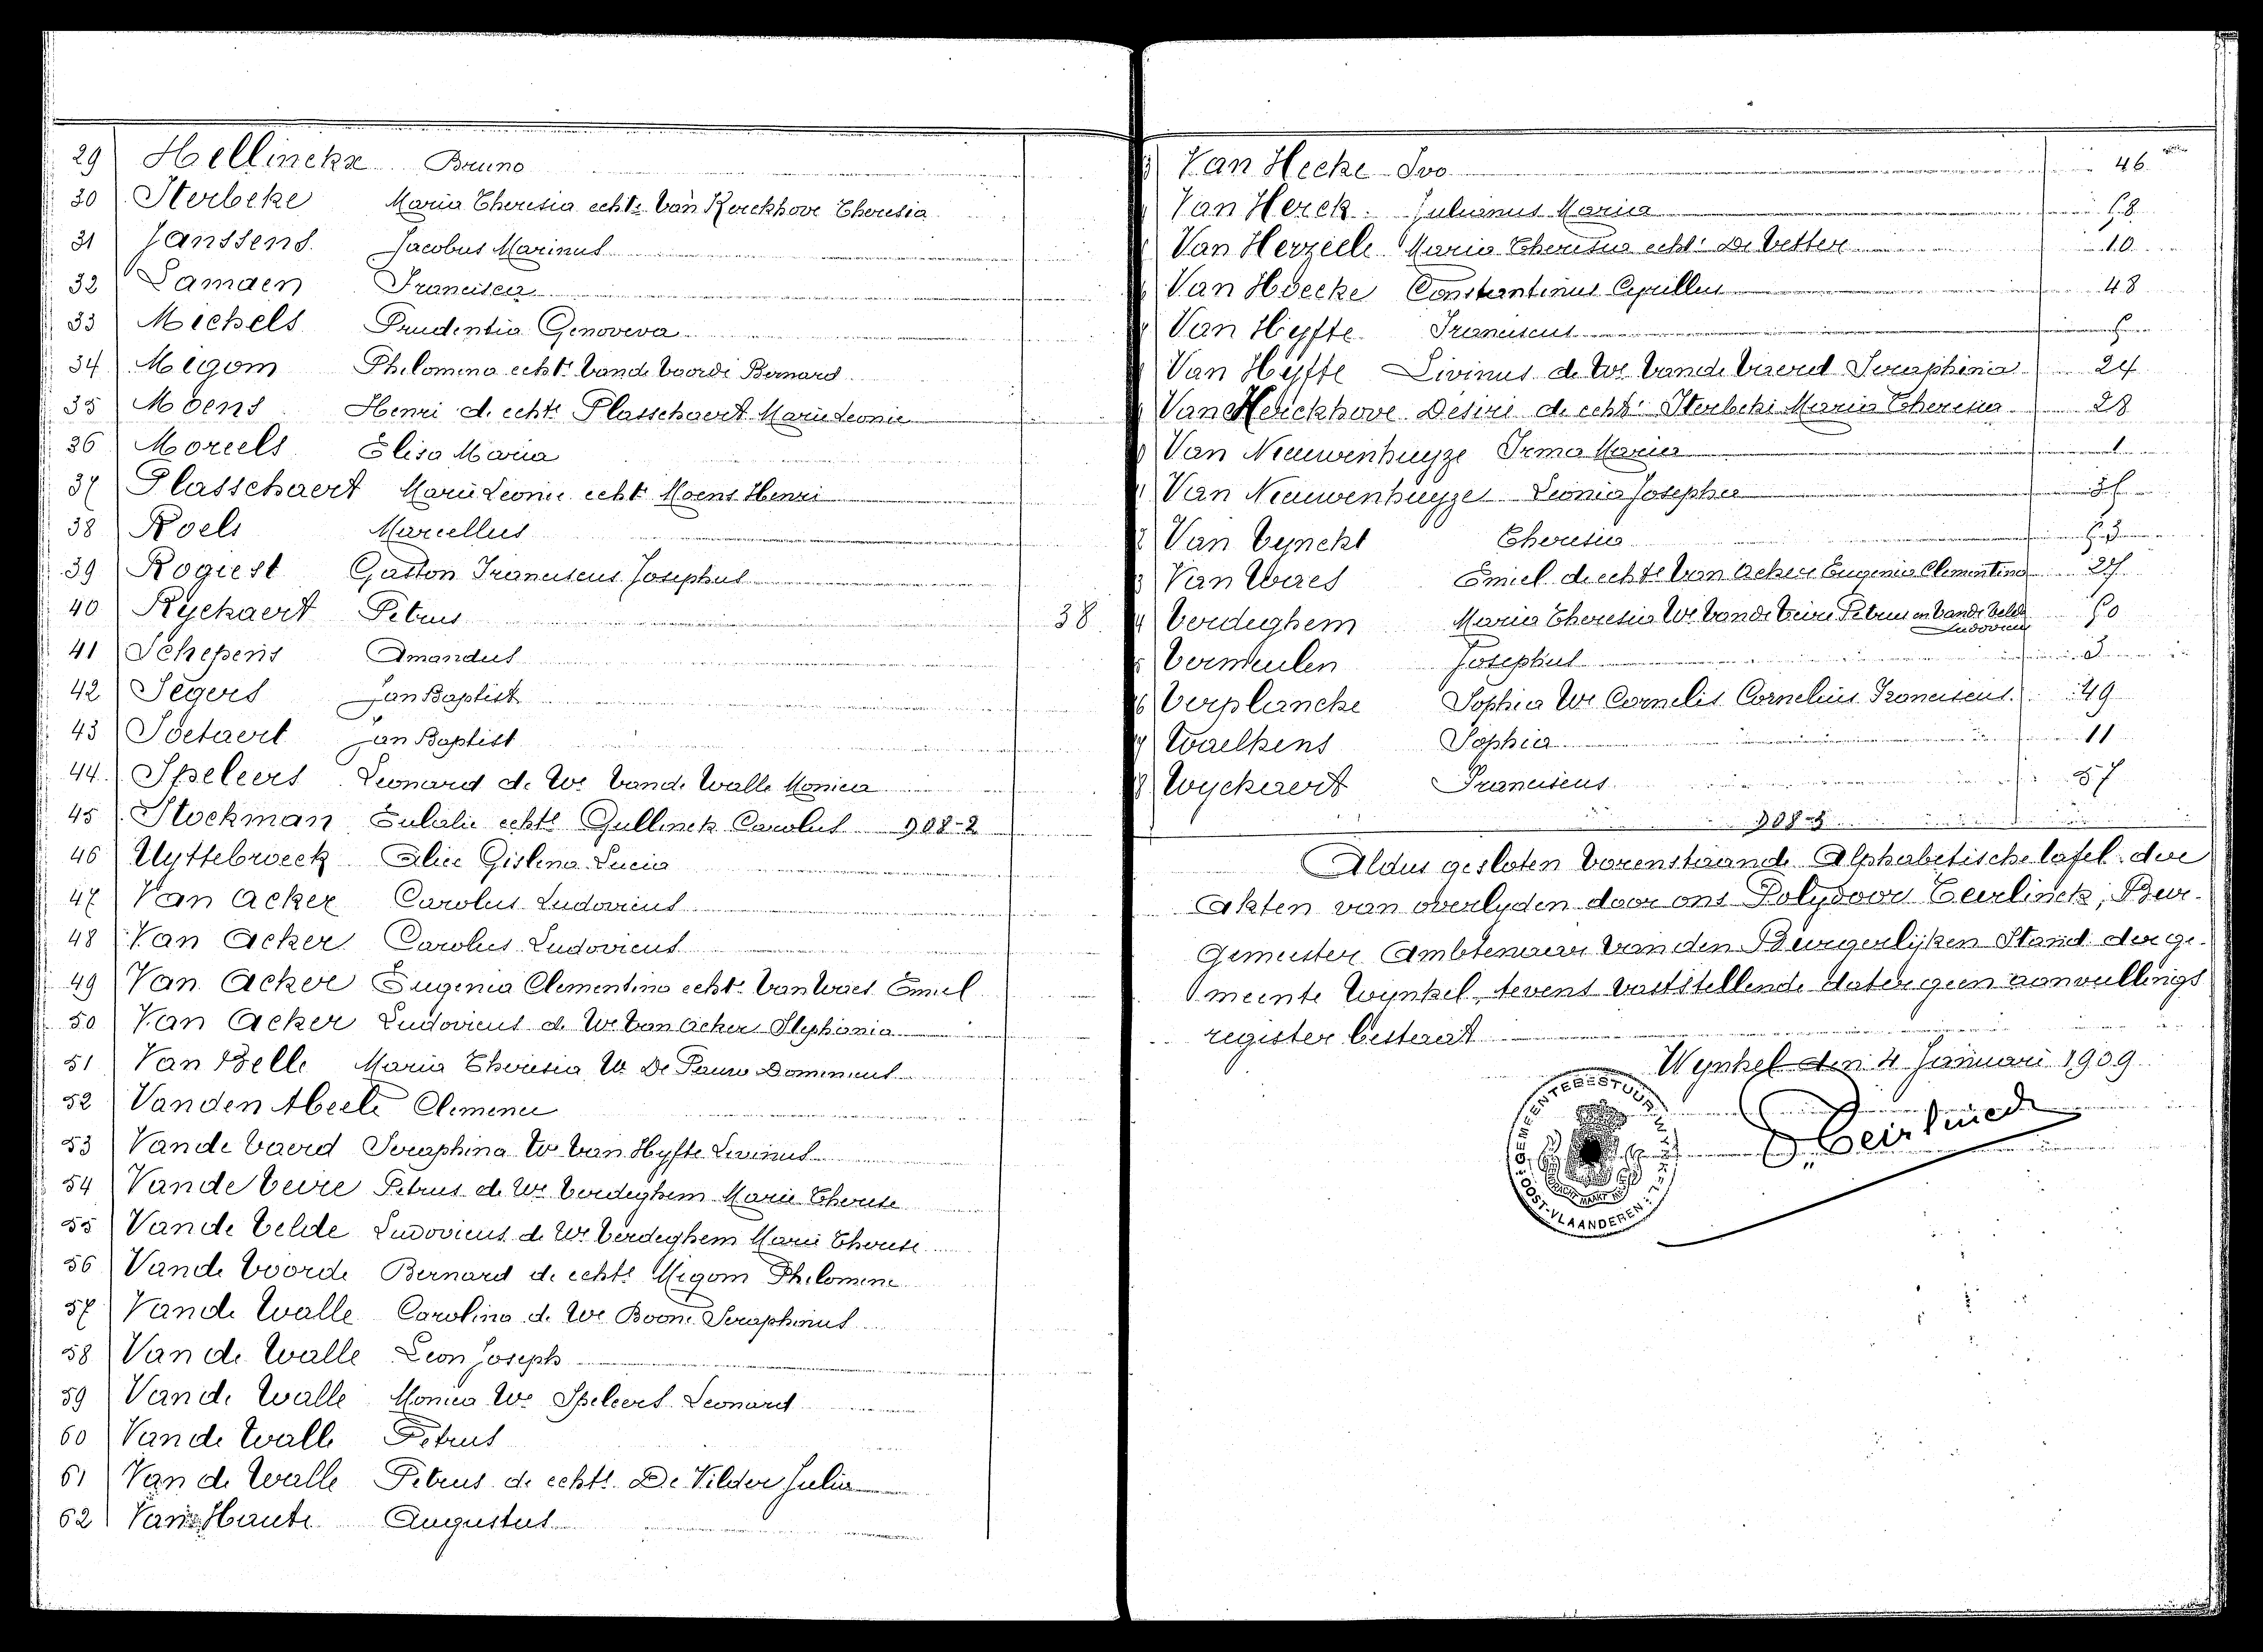 29 Hellinckx Bruno
30 Sterbeke Maria Theresia echte Van Kerckhove Theresia
31 Janssens Jacobus Marinus
32 Lamaen Francisca
33 Michels Prudentia Genoveva
34 Migom Philomena echte Vande Voorde Bernard
35 Moens Henri d. echte Plasschaert Marie Leonie
36 Moreels Elisa Maria
37 Plasschaert Marie Leonie echte Moens Henri
38 Roels Marcellus
39 Rogiest Gaston Franciscus Josephus
40 Ryckaert Petrus 38
41 Schepens Amandus
42 Segers Jan Baptist
43 Soetaert Jan Baptist
44 Speleers Leonard de We Vande Walle Monica
45 Stockman Eulalie echte Gullinck Carolus 908-2
46 Uyttebroeck Alice Gislena Lucia
47 Van Acker Carolus Ludovicus
48 Van Acker Carolus Ludovicus
49 Van Acker Eugenia Clementina echte Van Waes Emiel
50 Van Acker Ludovicus de We Van Acker Stephania
51 Van Belle Maria Theresia We De Pauw Dominicus
52 Vanden Abeele Clemence
53 Vande Vaerd Seraphina We Van Hyfte Livinus
54 Vande Veire Petrus de We Verdeghem Marie Therese
55 Vande Velde Ludovicus de We Verdeghem Marie Therese
56 Vande Voorde Bernard de echte Migom Philomene
57 Vande Walle Carolina de We Boone Seraphinus
58 Van de Walle Leon Joseph
59 Vande Walle Monica We Speleers Leonard
60 Vande Walle Petrus
61 Van de Walle Petrus de echte De Vilder Julia
62 Van Haute Augustus
Van Hecke Ivo 46
Van Herck Julianus Maria
Van Herzeele Maria Theresia echte De Vetter 10
Van Hoecke Constantinus Cyrillus 48
Van Hyfte Franciscus
Van Hyfte Livinus de We Vande Vaerd Seraphinia 24
Van Kerckhove Desiré de echte Sterbeke Maria Theresia 28
Van Nieuwenhuyze Irma Maria 1
Van Nieuwenhuyze Leonia Josepha
Van Vynckt Theresia
Van Waes Emiel de echte Van Acker Eugenia Clementina 27
Verdeghem Maria Theresia We Vande Veire Petrus en Vande Velde Ludovicus
Vermeulen Josephus 3
Verplancke Sophia We Cornelis Cornelius Franciscus 49
Waelkens Sophia 11
Wyckaert Franciscus 57
Aldus gesloten Vorenstaande Alphabetische tafel der
Akten van overlyden door ons Polydoor Teirlinck, Bur-
gemeester Ambtenaar van den Burgerlyken Stand der ge-
meente Wynkel, tevens vaststellende dat er geen aanvullings
register bestaat
Wynkel den 4 Januari 1909
P. Teirlinck
GEMEENTEBESTUUR WYNKEL
OOST-VLAANDEREN